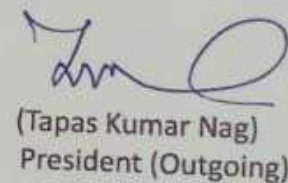 (Tapas Kumar Nag)
President (Outgoing)